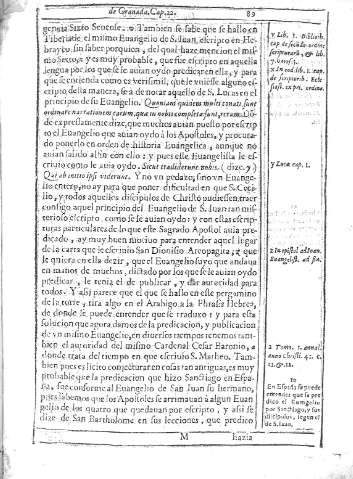 de Granada, Cap. 22. 89
genuis Sixto Senense. Tambien se sabe que se hallo en
Tiberiade el mismo Euangelio de S. Iuan, escripto en He-
brayco, sin saber porquien, del qual haze mencion el mis
mo Secco, y es muy probable, que fue escripto en aquella
lengua por los que se le auian oydo predicar en ella, y para
que se entienda como es verisimil, que le vuiesse alguno es-
cripto desta manera, se à de notar aquello de S. Lucas en el
principio de su Euangelio. Quoniam quidem multi conati sunt
ordinare narrationem rerum, quæ in nobis completæ sunt, rerum. Dõ
de expressamente dize, que muchos auian puesto por escrip
to el Euangelio que auian oydo à los Apostoles, y procura-
do ponerlo en orden de historia Euangelica, aunque no
auian salido al fin con ello: y pues esse Euangelista le es-
criuio como le auia oydo. Sicut tradiderunt nobis. (dize, y)
Qui ab initio ipsi viderunt. Y no vn pedaço, sino vn Euange-
lio entero, no ay para que poner dificultad en que S. Ceci-
lio, y todos aquellos discipulos de Christo pudiessen traer
consigo aquel principio del Euangelio de S. Iuan tan mi-
sterioso escripto, como se le auian oydo: y con ellas escrip
turas particulares de lo que este Sagrado Apostol auia pre
dicado, ay muy buen motiuo para entender aquel lugar
de la carta que le escriuio San Dionisio Areopagita, que
le quiera en ella dezir, que el Euangelio suyo que andaua
en manos de muchos, dictado por los que se le auian oydo
predicar, le tenia el de publicar, y dar autoridad para
todos. Y assi parece que el que se hallo en este pergamino
de la torre, tira algo en el Arabigo a la Phrasis Hebrea,
de donde se puede entender que se traduxo: y para esta
solucion que agora damos de la predicacion, y publicacion
de vn mismo Euangelio, en diuersos tiempos tenemos tam
bien el autoridad del mismo Cardenal Cesar Baronio,
donde trata del tiempo en que escriuio S. Matheo. Tam-
bien pues es licito conjecturar en cosas tan antiguas, es muy
probable que la predicacion que hizo Sanctiago en Espa-
ña, fue conforme al Euangelio de San Iuan su hermano,
pues sabemos que los Apostoles se arrimauan à algun Euan
gelio de los quatro que quedauan por escripto, y assi se
dize de San Bartholome en sus lecciones, que predico
M hazia
y Lib. 1. Biblioth.
y Lucæ cap. 1.
z In epistol. ad Ioan.
Euangelist. ad fin.
a Tom. 1. annal.
anno Christi 41. c.
10
En España se predico
el Euangelio
por Sanctiago, y sus
discipulos, segun el
de S. Iuan.